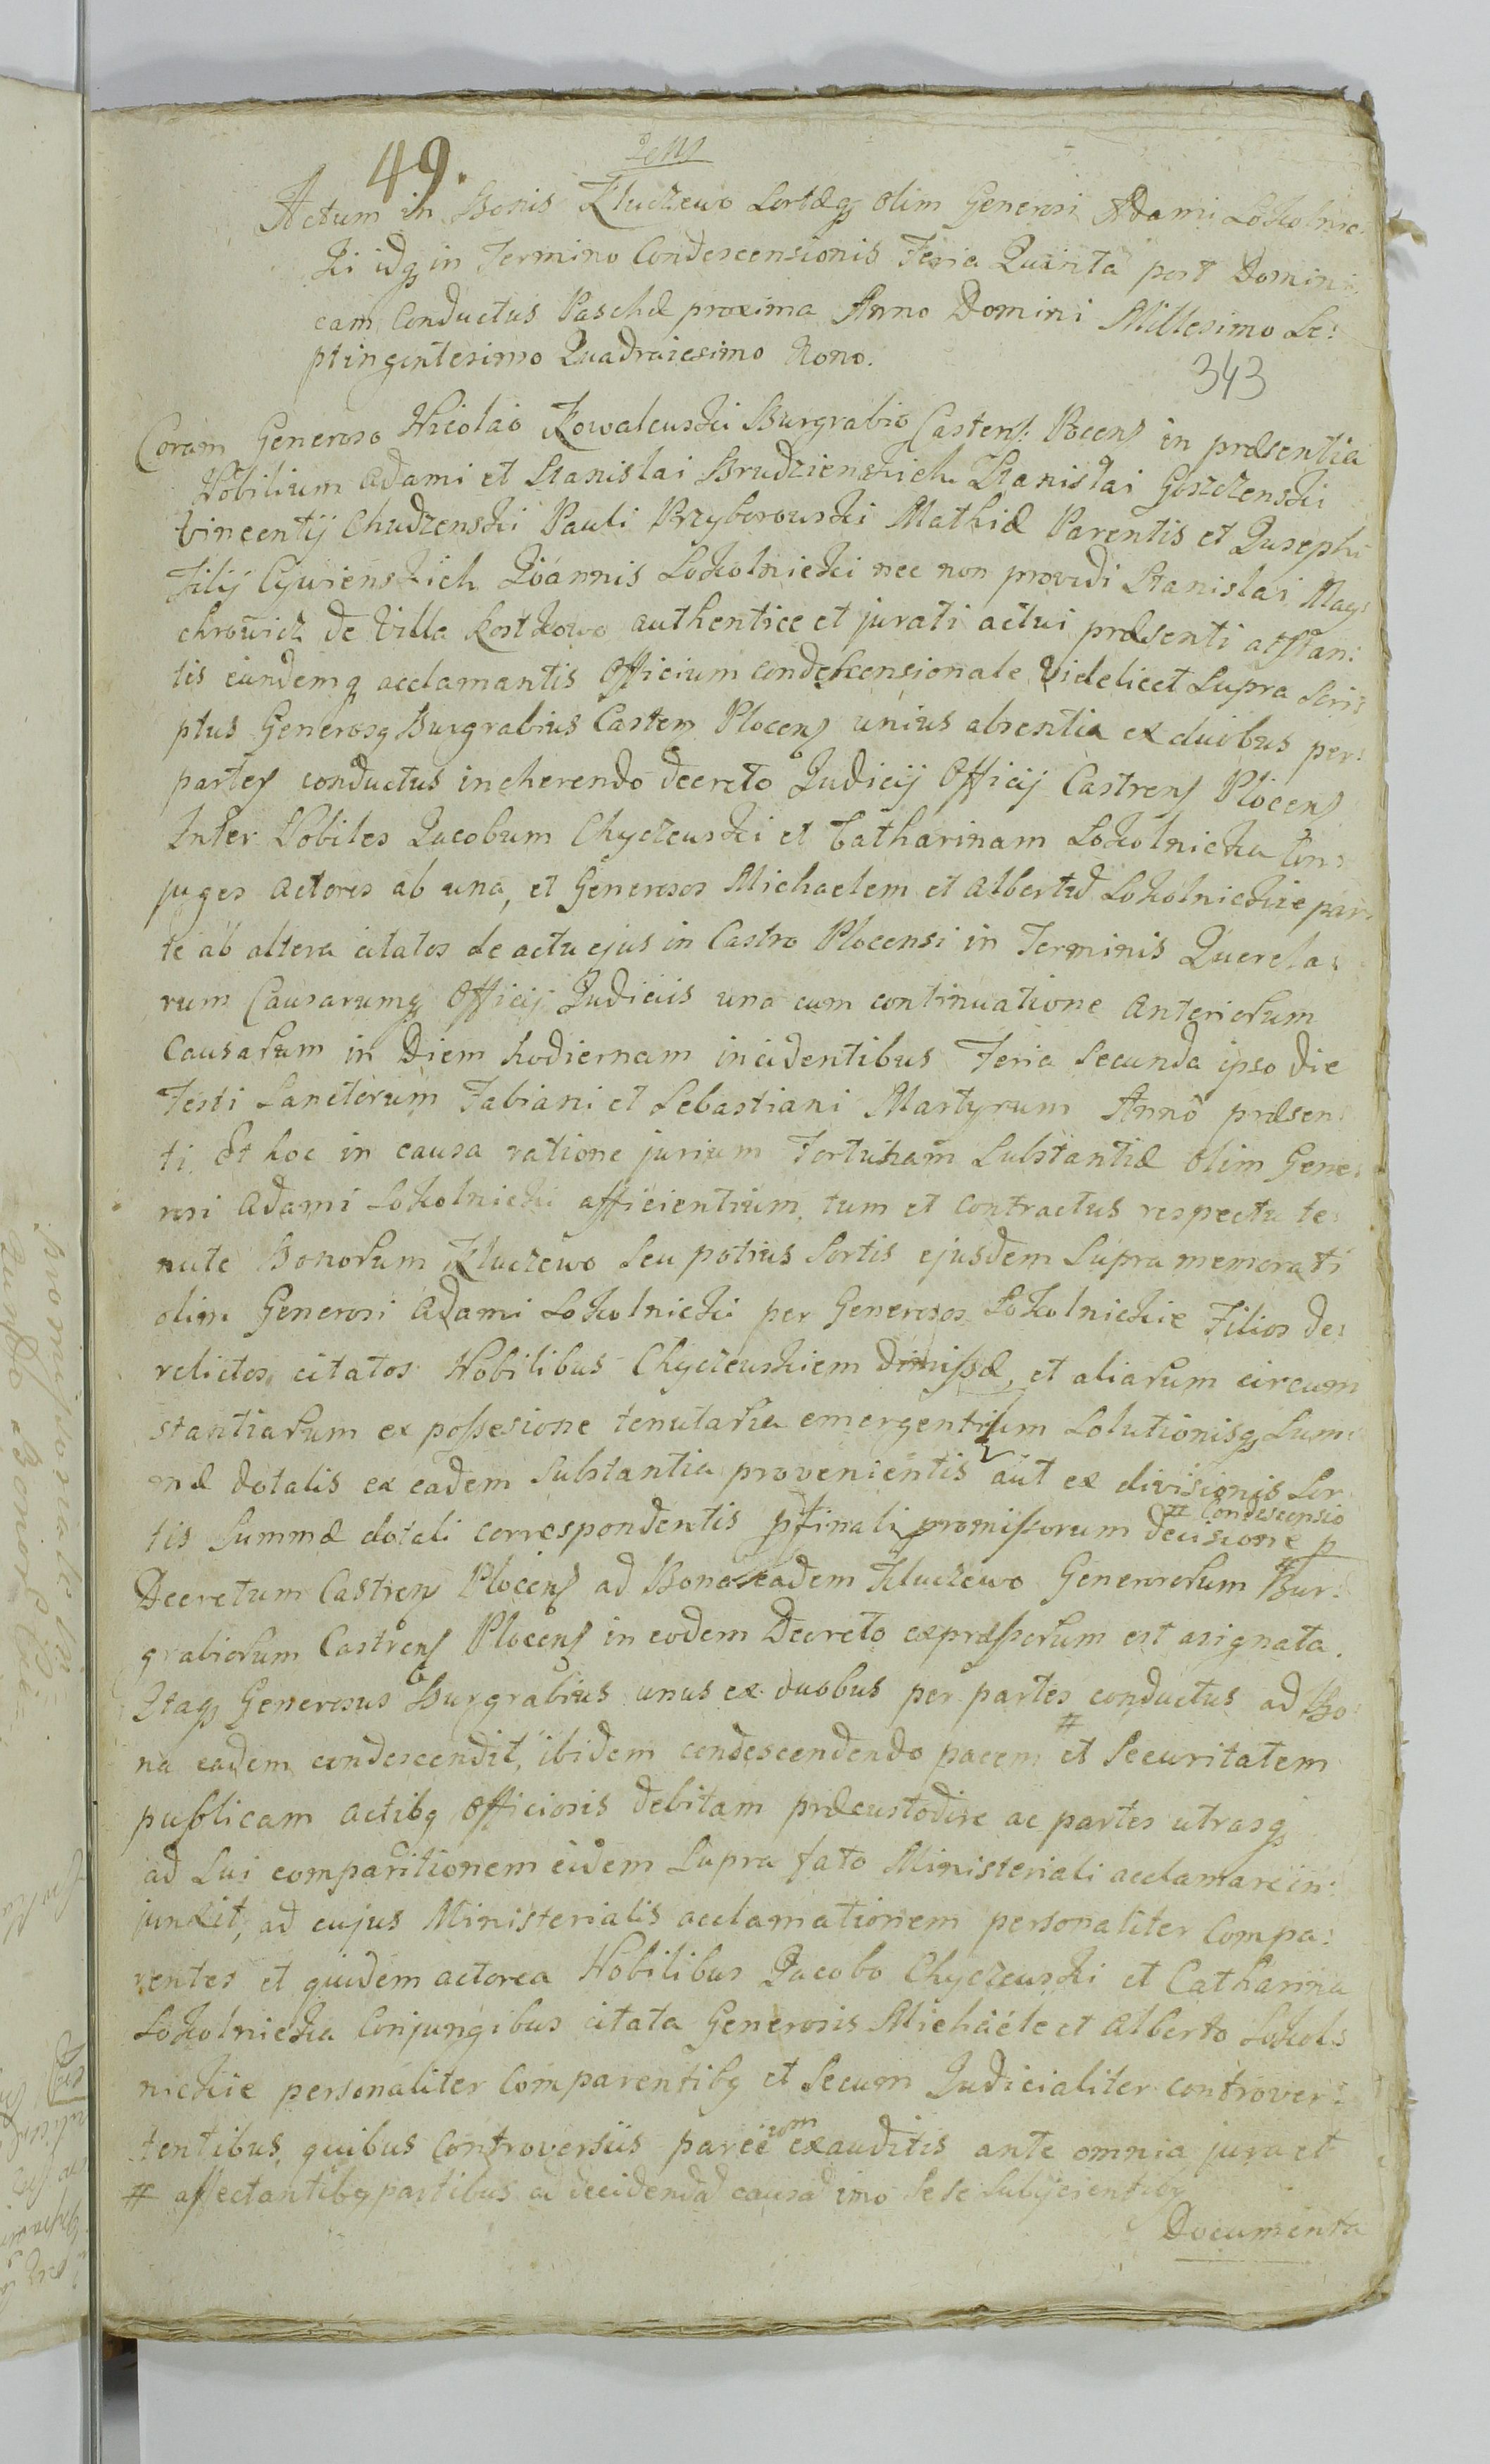 49.
Actum in Bonis Kluczewo Sortæq olim Generosi Adami Sokolnic:
ki idq in Termino Condescensionis Feria Quinta post Domini:
cam Conductus Paschæ proxima Anno Domini Millesimo Se:
ptingentesimo Quadraiesimo Nono.
343
Coram Generoso Nicolao Kowalewski Burgrabio Castens: Pocens in præsentia
Nobilium Adami et Stanislai Brudzienskich Stanislai Goszczenski
Vincentij Chudzenski Pauli Przyborowski Mathiæ Parentis et Jusephi
Filij Cywienskich Joannis Sokolnicki nec non providi Stanislai May:
chrowicz de Villa Kostkowo authentice et jurati actui præsenti asstan:
tis eundemq acclamantis Officium condescensionale Videlicet Supra Scri:
ptus Generosq Burgrabius Castens Plocens unius absentia ex duobus per
partes conductus inchærendo decreto Judicij Officij Castrens Plocens
Inter Nobiles Jacobum Chyczewski et Catharinam Sokolnicka Con:
juges Actores ab una, et Generosos Michaelem et Albertum Sokolnickie par:
te ab altera citatos de actu ejus in Castro Plocensi in Terminis Querela:
rum Causarumq Officij Judiciis una cum continuatione Anteriorum
Causarum in Diem hodiernam incidentibus Feria Secunda ipso die
Festi Sanctorum Fabiani et Sebastiani Martyrum Anno præsen:
ti. Et hoc in causa ratione jurium Fortunam Substantiæ olim Gene:
rosi Adami Sokolnicki afficientium, tum et Contractus respectu te:
nute Bonorum Kluczewo Seu potius Sortis ejusdem Supra memorati
olim Generosi Adami Sokolnicki per Generosos Sokolnickie Filios de:
relictos citatos Nobilibus Chyczewskiem dimissæ, et aliarum circum
stantiarum ex possesione tenutaria emergentium Solutionisq Sum:
mæ dotalis ex eadem Substantia provenientis aut ex divisionis Sor:
tis Summæ dotali correspondentis finali promissorum decisione # Condescensio p
Decretum Castrens Plocens ad Bona eadem Kluczewo Generosorum Bur:
grabiorum Castrens Plocens in eodem Decreto expressorum est asignata.
Itaq Generosus Burgrabius unus ex duobus per partes conductus ad Bo:
na eadem condescendit, ibidem condescendendo pacem # et Securitatem
publicam actibq Officiosis debitam præcustodire ac partes utrasq
ad Sui comparitionem eidem Supra fato Ministeriali acclamare in:
junxit, ad cujus Ministerialis acclamationem personaliter Compa:
rentes et quidem actorea Nobilibus Jacobo Chyczewski et Catharina
Sokolnicka Conjungibus citata Generosis Michaele et Alberto Sokol:
nickie personaliter Comparentibq et Secum Judicialiter controver:
tentibus, quibus Controversiis parcium exauditis ante omnia jura et
# affectantibq partibus ad decidendam causam imo Se Se Subijcientibq
Documenta